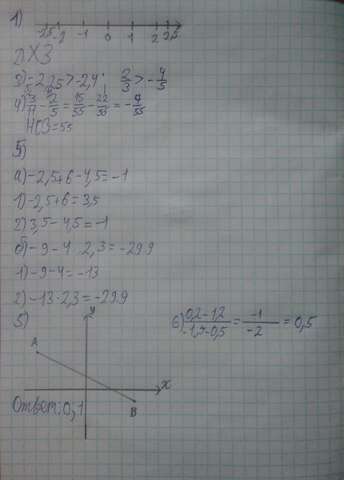 1)
-2,5 -2 -1 0 1 2 2,5
2) X3
3) -2,25 > -2,4; 2/3 > -4/5
4) 3/11 - 2/5 = 15/55 - 22/55 = -7/55
НОЗ = 55
5)
а) -2,5+6-4,5=-1
1) -2,5+6=3,5
2) 3,5-4,5=-1
б) -9-4 · 2,3=-29.9
1) -9-4=-13
2) -13·2,3=-29.9
5) y
6) 0,2-1,2/-1,3-0,5 = -1/-2 = 0,5
A
x
Ответ: 0,1
B